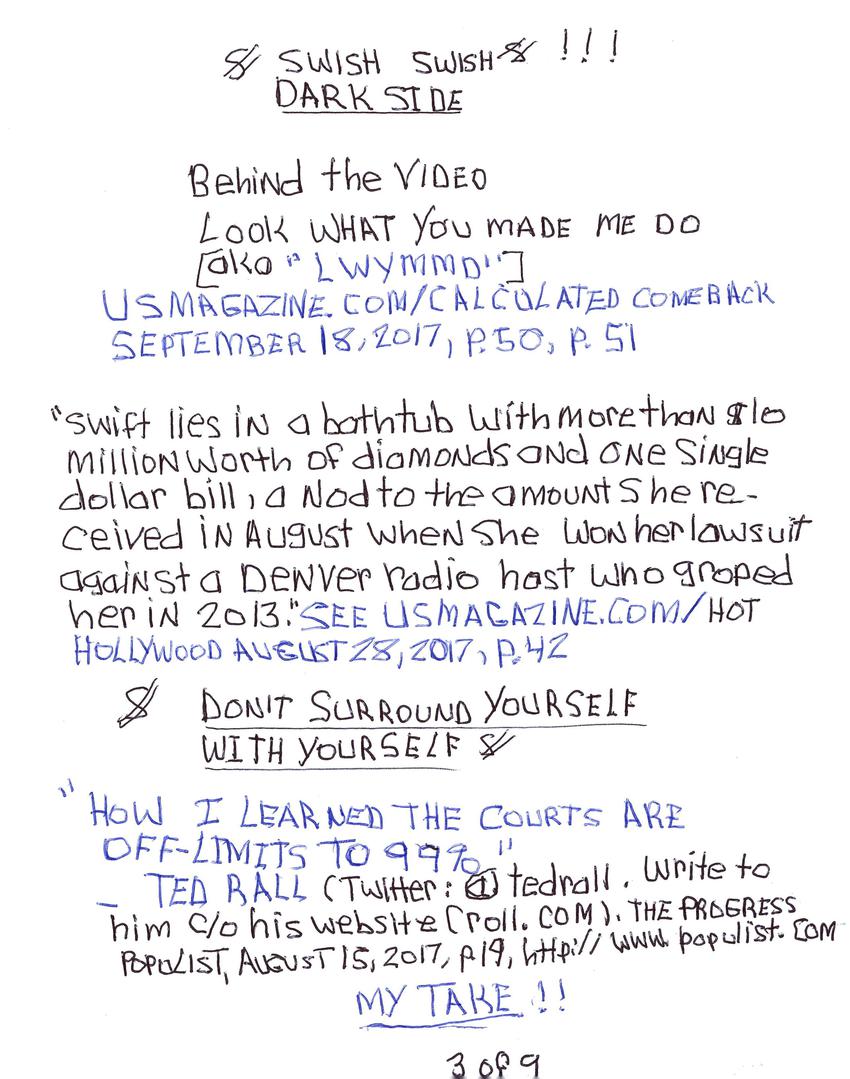 SWISH SWISH !!!
DARK SIDE
Behind the VIDEO
Look WHAT You MADE ME DO
[aka "LWYMMD"]
USMAGAZINE.COM/CALCULATED COMEBACK
SEPTEMBER 18, 2017, P.50, P. 51
"Swift lies in a bathtub with more than $10
million worth of diamonds and one single
dollar bill, a nod to the amount she re-
ceived in August when she won her lawsuit
against a Denver radio host who groped
her in 2013." SEE USMAGAZINE.COM/HOT
HOLLYWOOD AUGUST 28, 2017, P.42
DON'T SURROUND YOURSELF
WITH YOURSELF
"HOW I LEARNED THE COURTS ARE
OFF-LIMITS TO 99%"
_ TED RALL (Twitter: @tedrall. Write to
him c/o his website (rall.COM). THE PROGRESS
POPULIST, AUGUST 15, 2017, p.19, http:// www.populist.COM
MY TAKE !!
3 of 9